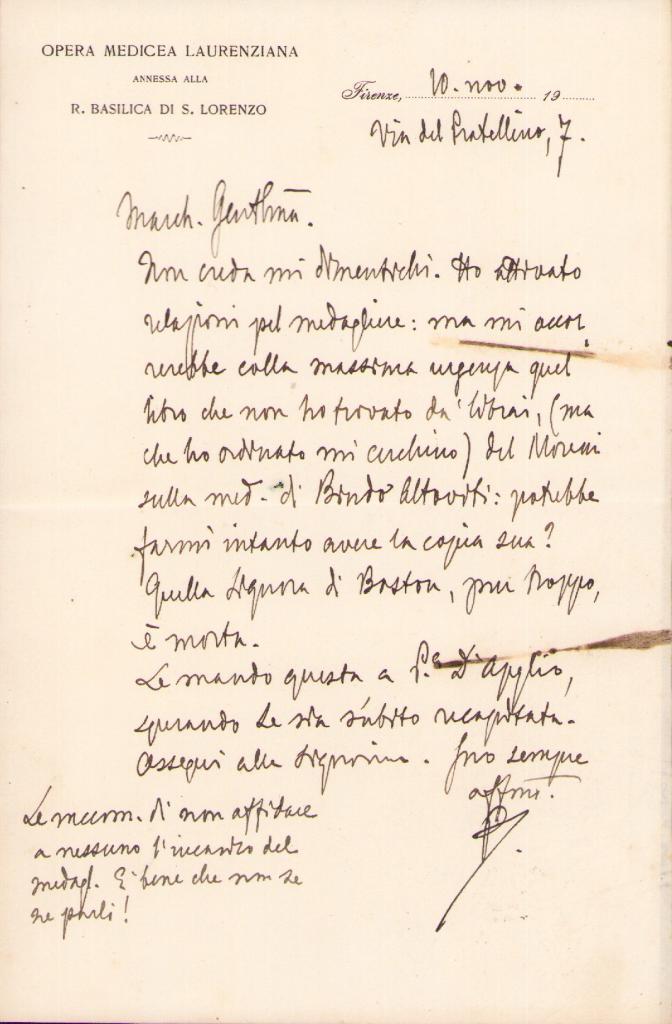 OPERA MEDICEA LAURENZIANA
ANNESSA ALLA
R. BASILICA DI S. LORENZO
Firenze, 10. nov. 19
Via del Pratellino, 7.
March. Gentlma.
Non creda mi dimentichi. Ho attivato
relazioni pel medagliere: ma mi accor
rerebbe colla massima urgenza quel
libro che non ho trovato da' librai, (ma
che ho ordinato mi cerchino) del Moreni
sulla med. di Bindo Altoviti: potrebbe
farmi intanto avere la copia sua?
Quella Signora di Boston, pur troppo,
è morta.
Le mando questa a P.e D'Applio,
sperando Le sia subito recapitata.
Ossequi alle Signorine. Suo sempre
affmo.
Le raccom. di non affidare
a nessuno l'incarico del
medagl. E' bene che non se
ne parli!